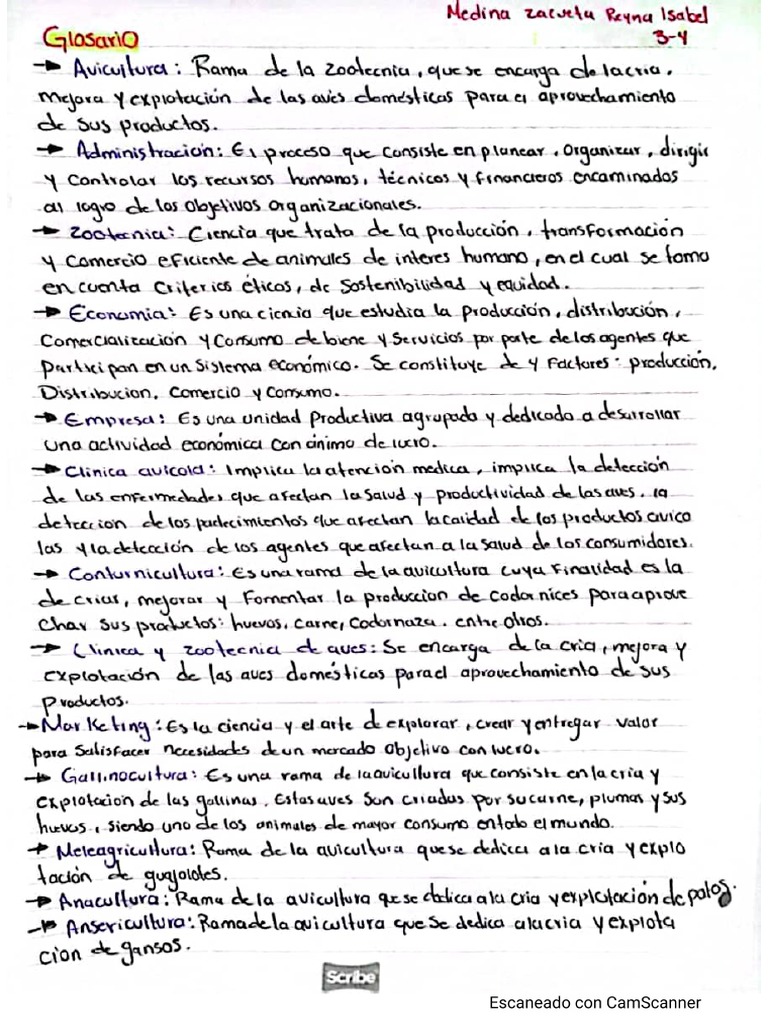 Medina zacveta Reyna Isabel
3-4
Glosario
→ Avicultura: Rama de la zootecnia, que se encarga de la cria,
mejora y explotación de las aves domésticas para el aprovechamiento
de sus productos.
→ Administracion: El proceso que consiste en planear, organizar, dirigir
y controlar los recursos humanos, técnicos y financieros encaminados
al logro de los objetivos organizacionales.
→ Zootecnia: Ciencia que trata de la producción, transformación
y comercio eficiente de animales de interes humano, en el cual se toma
en cuenta criterios éticos, de sostenibilidad y equidad.
→ Economia: Es una ciencia que estudia la producción, distribución,
comercialización y consumo de biene y servicios por parte de los agentes que
participan en un sistema económico. Se constituye de 4 factores: producción,
Distribucion, comercio y consumo.
→ Empresa: Es una unidad productiva agrupada y dedicada a desarrollar
una actividad económica con ánimo de lucro.
→ Clinica avicola: Implica la atención medica, implica la detección
de las enfermedades que afectan la salud y productividad de las aves. la
deteccion de los padecimientos que afectan la calidad de los productos avico
las y la detección de los agentes que afectan a la salud de los consumidores.
→ Conturnicultura: Es una rama de la avicultura cuya finalidad es la
de criar, mejorar y fomentar la produccion de codornices para aprove
char sus productos: huevos, carne, codornaza. entre otros.
→ Clinica y zootecnia de aves: Se encarga de la cria, mejora y
explotación de las aves domésticas para el aprovechamiento de sus
productos.
→ Marketing: Es la ciencia y el arte de explorar, crear y entregar valor
para satisfacer necesidades de un mercado objetivo con lucro.
→ Gallinocultura: Es una rama de la avicultura que consiste en la cria y
explotacion de las gallinas. Estas aves son criadas por su carne, plumas y sus
huevos, siendo uno de los animales de mayor consumo en todo el mundo.
→ Meleagricultura: Rama de la avicultura que se dedica a la cria y explo
tación de guajolotes.
→ Anacultura: Rama de la avicultura que se dedica a la cria y explotación de patos.
→ Ansericultura: Rama de la avicultura que se dedica a la cria y explota
cion de gansos.
Scribe
Escaneado con CamScanner